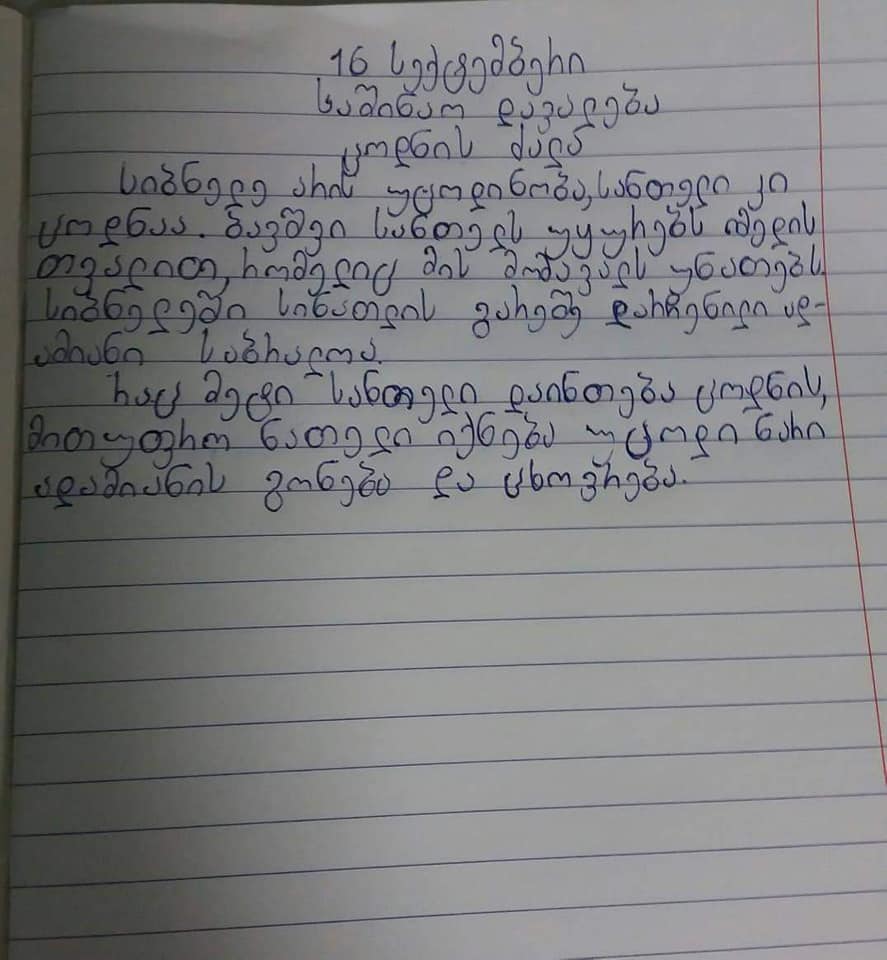 16 სექტემბერი
საშინაო დავალება
ცოდნის ძალა
სიბნელე არის უცოდინრობა, სანთელი კი
ცოდნაა. ბავშვი სანთელს უყურებს იმედის
თვალით, რომელიც მის მომავალს უნათებს.
სიბნელეში სინათლის გარეშე დარჩენილი ად-
ამიანი საბრალოა.
რაც მეტი სანთელი დაინთება ცოდნის,
მით უფრო ნათელი იქნება უცოდინარი
ადამიანის გონება და ცხოვრება.